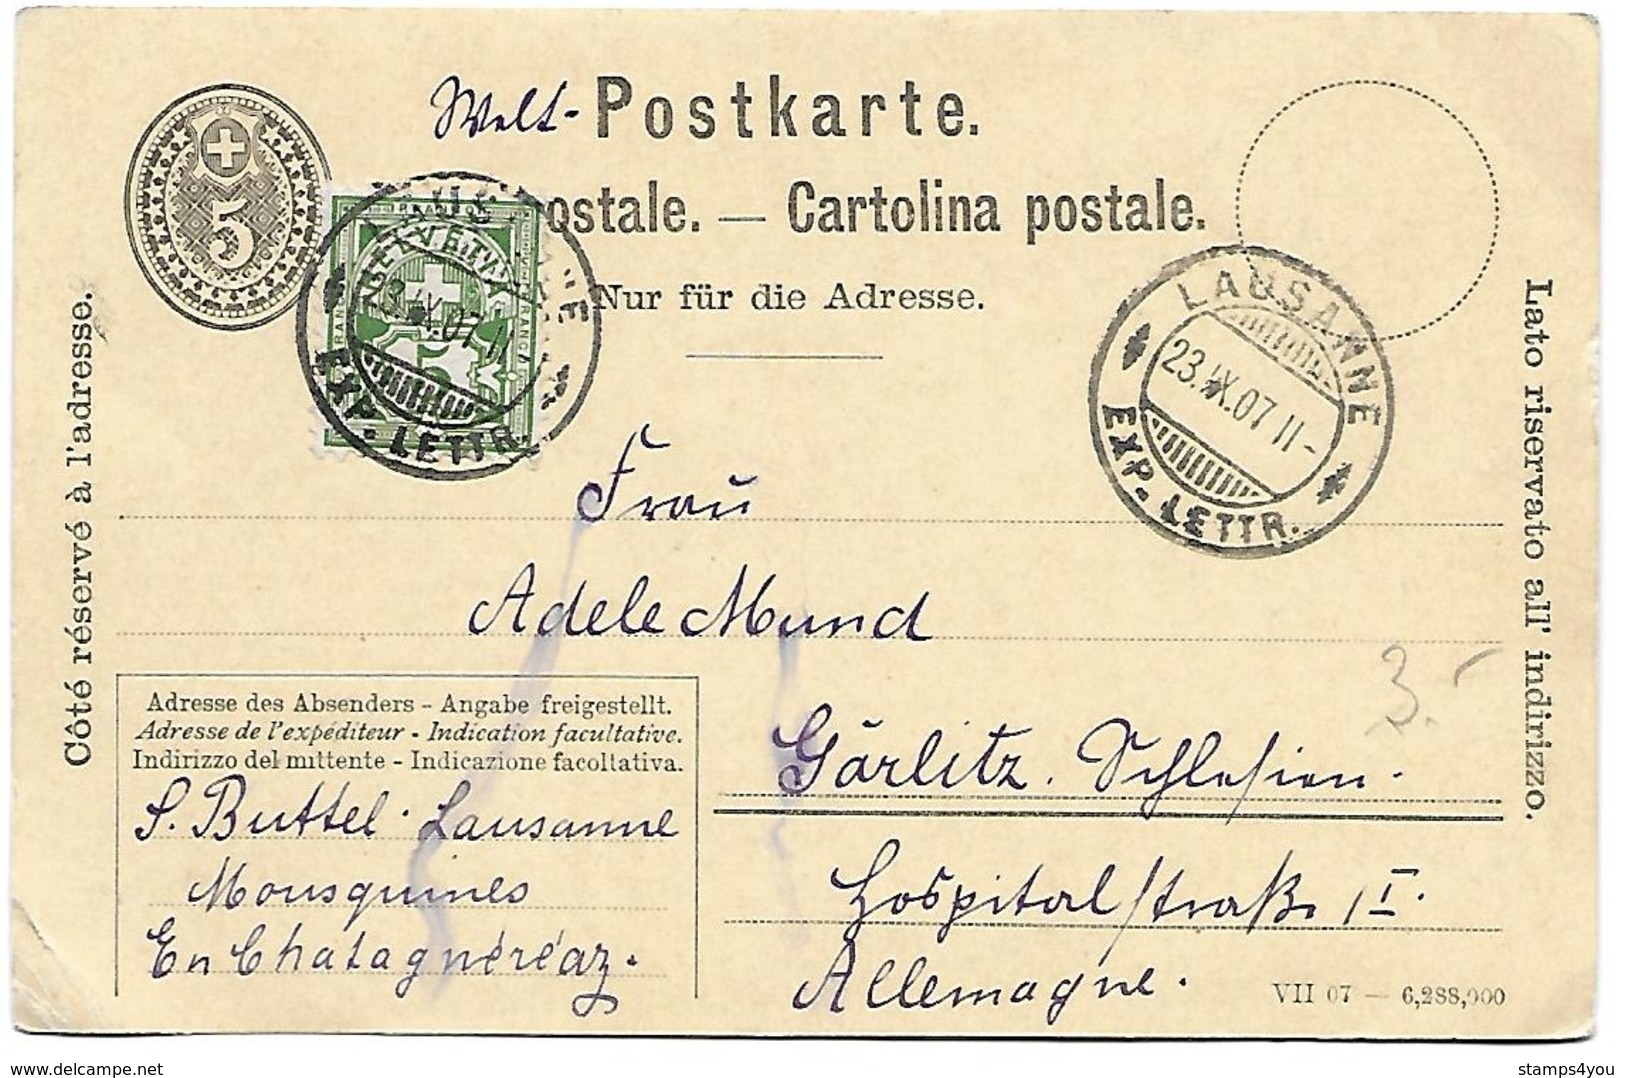 Welt-Postkarte.
ostale. — Cartolina postale.
Nur für die Adresse.
5
HELVETIA
FRANCO
LAUSANNE
23.IX.07 11
EXP. LETTR.
LAUSANNE
23.IX.07 11-
EXP. LETTR.
Côté réservé à l'adresse.
Lato riservato all' indirizzo.
Frau
Adele Mund
Görlitz. Schlesien.
Hospitalstraße 1 I.
Allemagne.
Adresse des Absenders - Angabe freigestellt.
Adresse de l'expéditeur - Indication facultative.
Indirizzo del mittente - Indicazione facoltativa.
S. Buttel. Lausanne
Mousquines
En Chatagnéréaz.
3.-
VII 07 — 6,288,000
delcampe.net
stamps4you